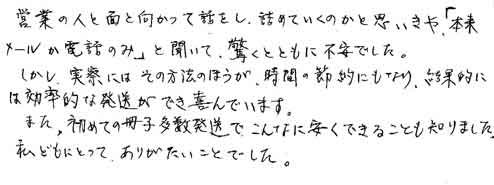 営業の人と面と向かって話をし、詰めていくのかと思いきや、「本来
メールか電話のみ」と聞いて、驚くとともに不安でした。
しかし、実際にはその方法のほうが、時間の節約にもなり、結果的に
は効率的な発送ができ喜んでいます。
また、初めての冊子多数発送で、こんなに安くできることも知りました。
私どもにとって、ありがたいことでした。